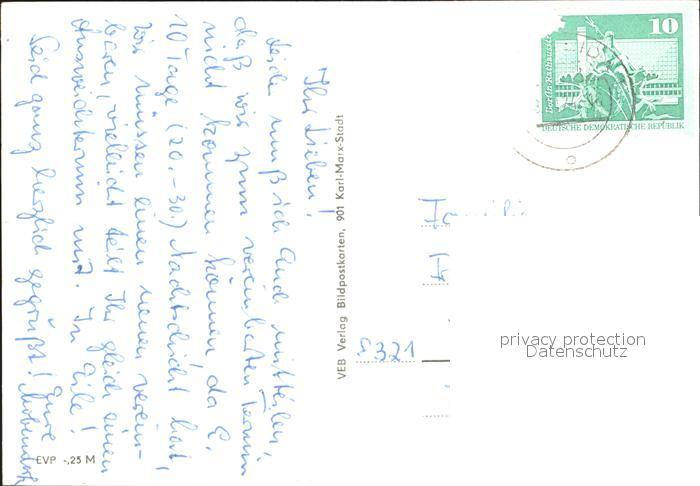 Ihr Lieben!
Leider muß ich Euch mitteilen,
daß wir zum vereinbarten Termin
nicht kommen können, da E.
10 Tage (20.-30.) Nachtschicht hat,
wir müssen einen neuen verein-
baren, vielleicht teilt Ihr gleich einen
Ausweichtermin mit. In Eile!
Seid ganz herzlich gegrüßt! Eure
EVP -,25 M
VEB Verlag Bildpostkarten, 901 Karl-Marx-Stadt
10
Berlin Rathausstr
DEUTSCHE DEMOKRATISCHE REPUBLIK
5321
privacy protection
Datenschutz